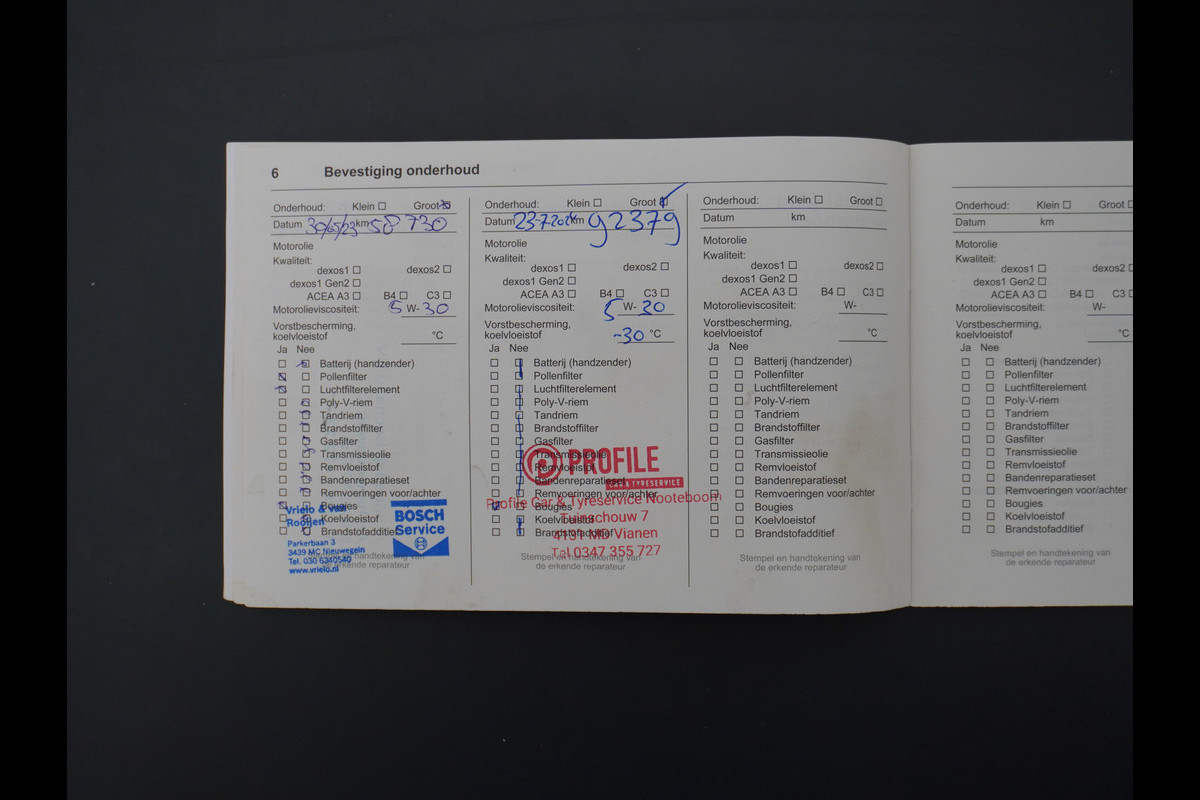 6 Bevestiging onderhoud
Onderhoud: Klein ☐ Groot ☒
Datum 30/05/23 km 58 730
Motorolie
Kwaliteit:
dexos1 ☐ dexos2 ☐
dexos1 Gen2 ☐
ACEA A3 ☐ B4 ☐ C3 ☐
Motorolieviscositeit: 5 W- 30
Vorstbescherming,
koelvloeistof °C
Ja Nee
Batterij (handzender)
Pollenfilter
Luchtfilterelement
Poly-V-riem
Tandriem
Brandstoffilter
Gasfilter
Transmissieolie
Remvloeistof
Bandenreparatieset
Remvoeringen voor/achter
Bougies
Koelvloeistof
Brandstofadditief
Stempel en handtekening van
de erkende reparateur
Vrielo & van
Rooijen
Parkerbaan 3
3439 MC Nieuwegein
Tel. 030 6340540
www.vrielo.nl
BOSCH
Service
Onderhoud: Klein ☐ Groot ☑
Datum 23-7-2024 km 92379
Motorolie
Kwaliteit:
dexos1 ☐ dexos2 ☐
dexos1 Gen2 ☐
ACEA A3 ☐ B4 ☐ C3 ☐
Motorolieviscositeit: 5 W- 30
Vorstbescherming,
koelvloeistof -30 °C
Ja Nee
Batterij (handzender)
Pollenfilter
Luchtfilterelement
Poly-V-riem
Tandriem
Brandstoffilter
Gasfilter
Transmissieolie
Remvloeistof
Bandenreparatieset
Remvoeringen voor/achter
Bougies
Koelvloeistof
Brandstofadditief
Stempel en handtekening van
de erkende reparateur
PROFILE
CAR & TYRESERVICE
Profile Car & Tyreservice Nooteboom
Tuinschouw 7
4131 MD Vianen
Tel.0347 355 727
Onderhoud: Klein ☐ Groot ☐
Datum km
Motorolie
Kwaliteit:
dexos1 ☐ dexos2 ☐
dexos1 Gen2 ☐
ACEA A3 ☐ B4 ☐ C3 ☐
Motorolieviscositeit: W-
Vorstbescherming,
koelvloeistof °C
Ja Nee
Batterij (handzender)
Pollenfilter
Luchtfilterelement
Poly-V-riem
Tandriem
Brandstoffilter
Gasfilter
Transmissieolie
Remvloeistof
Bandenreparatieset
Remvoeringen voor/achter
Bougies
Koelvloeistof
Brandstofadditief
Stempel en handtekening van
de erkende reparateur
Onderhoud: Klein ☐ Groot ☐
Datum km
Motorolie
Kwaliteit:
dexos1 ☐ dexos2
dexos1 Gen2 ☐
ACEA A3 ☐ B4 ☐ C3 ☐
Motorolieviscositeit: W-
Vorstbescherming,
koelvloeistof °C
Ja Nee
Batterij (handzender)
Pollenfilter
Luchtfilterelement
Poly-V-riem
Tandriem
Brandstoffilter
Gasfilter
Transmissieolie
Remvloeistof
Bandenreparatieset
Remvoeringen voor/achter
Bougies
Koelvloeistof
Brandstofadditief
Stempel en handtekening van
de erkende reparateur